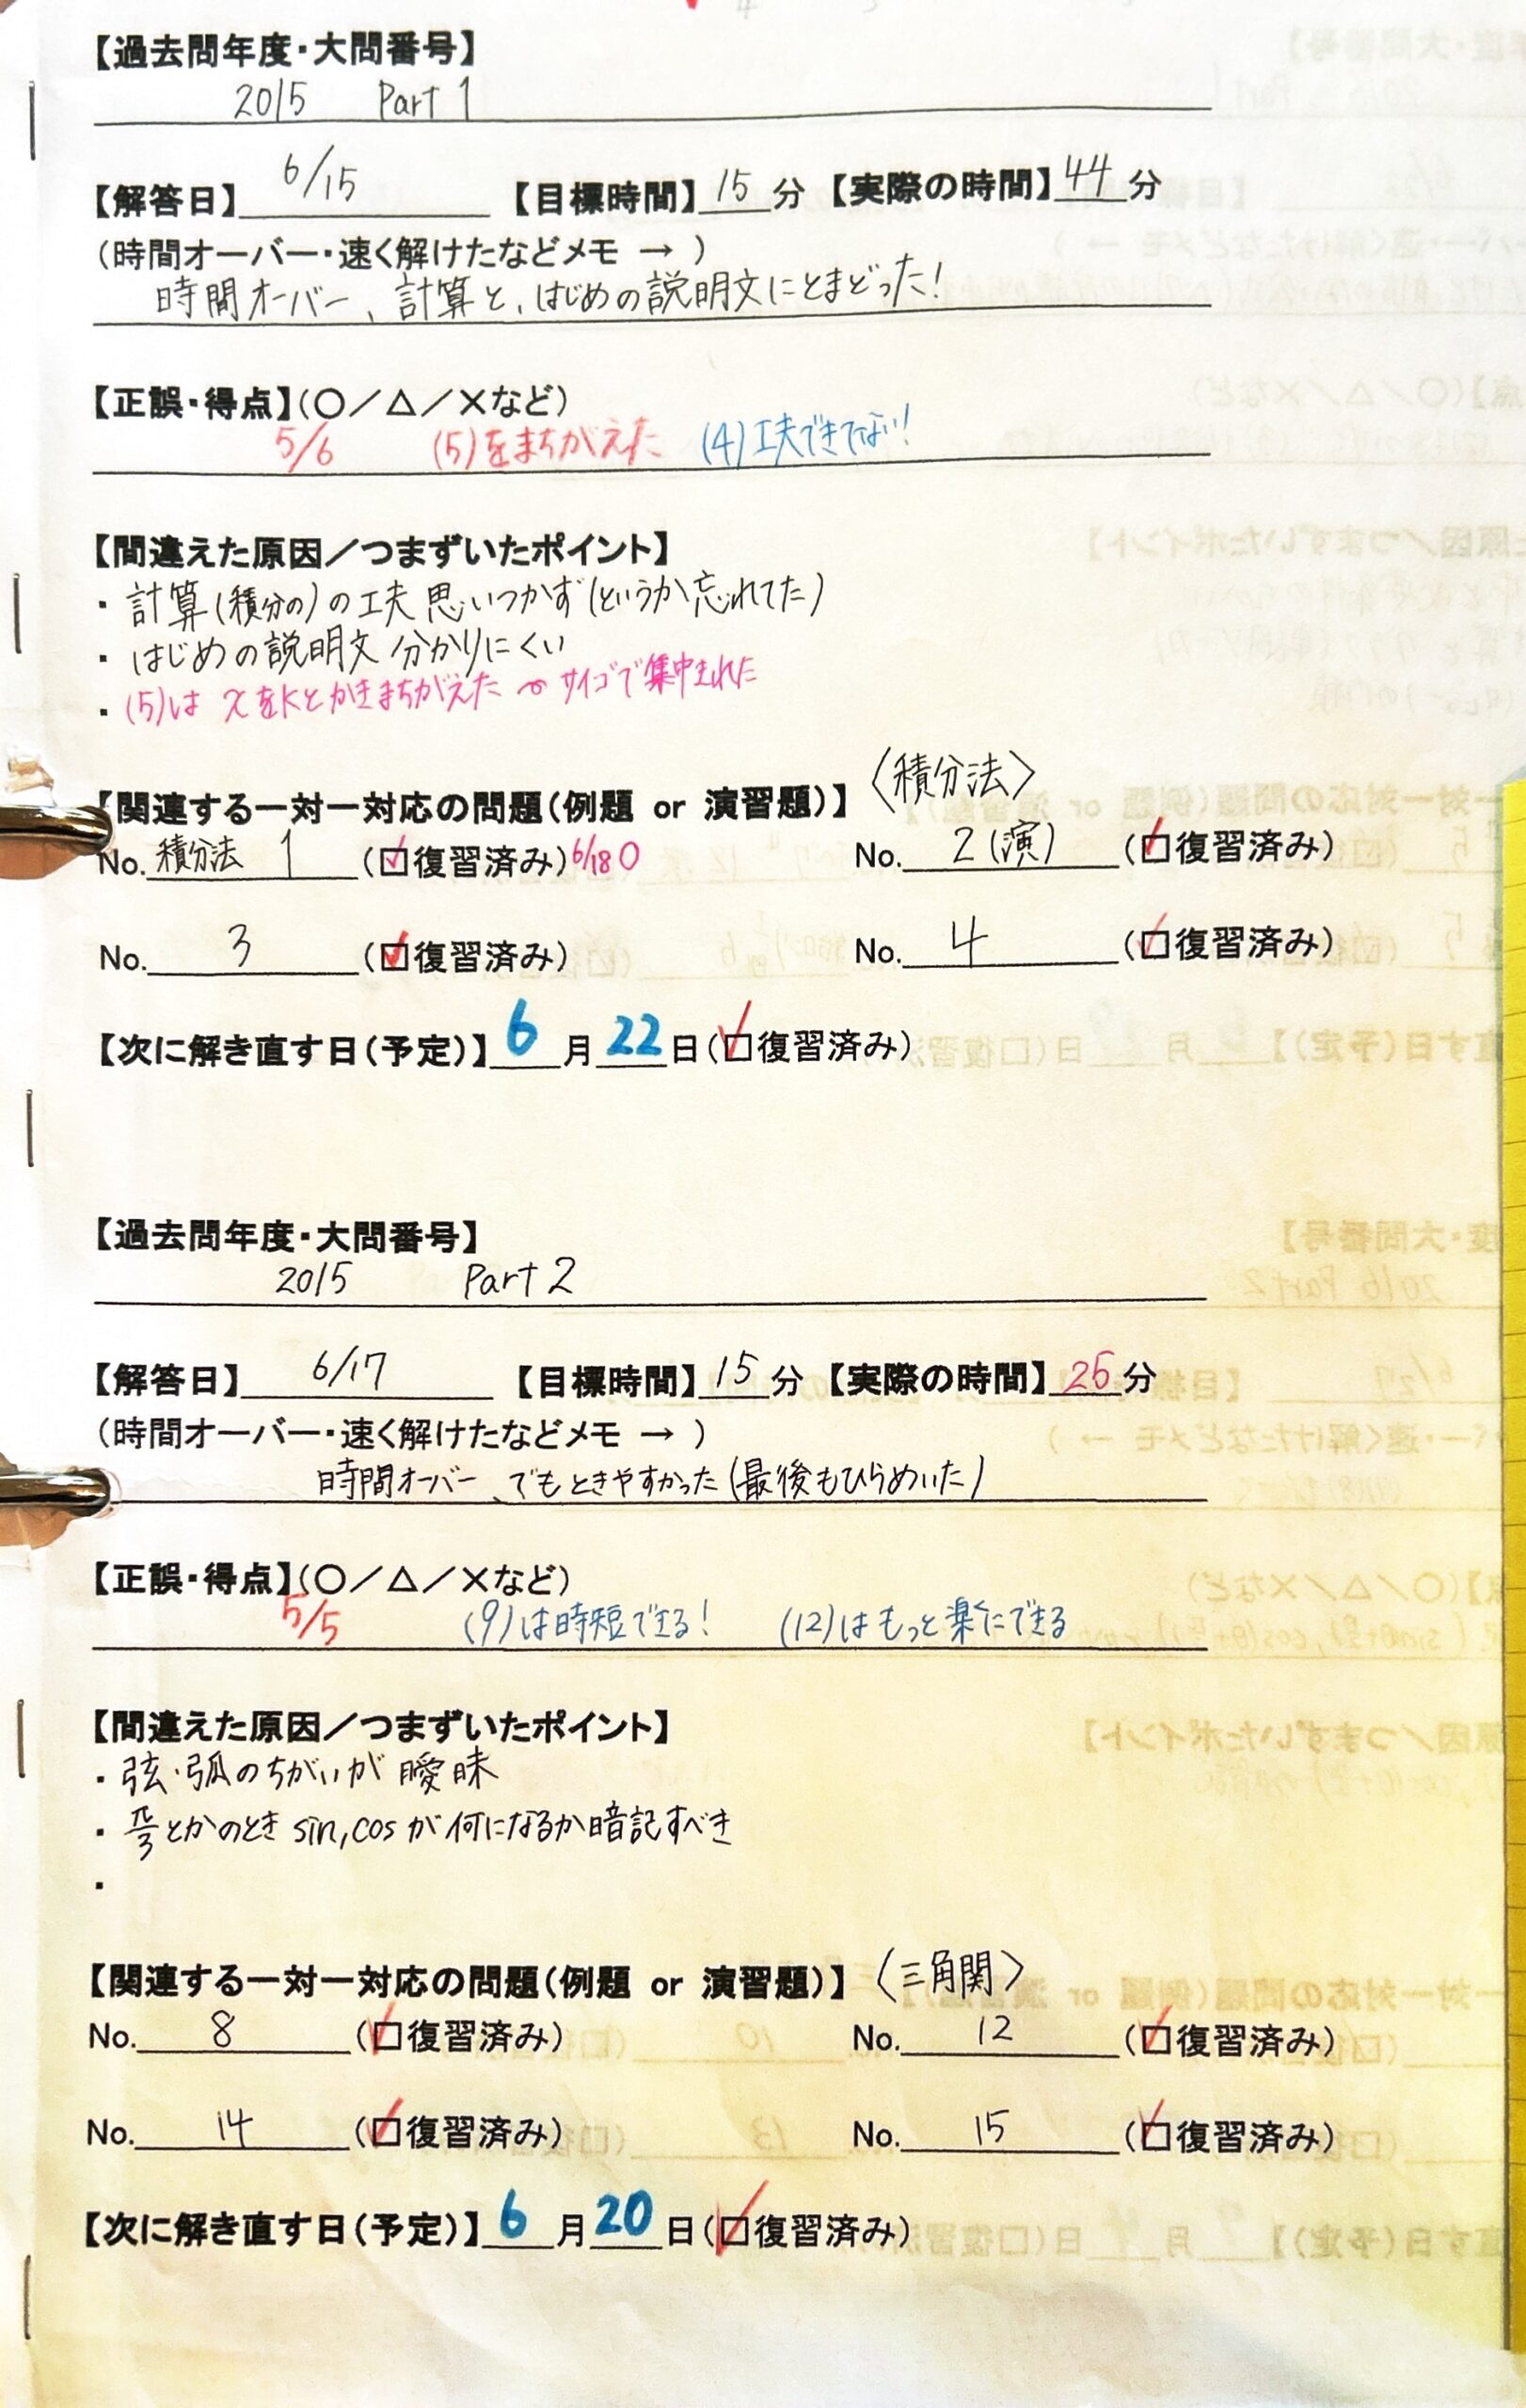 【過去問年度・大問番号】
2015 Part 1
【解答日】 6/15 【目標時間】 15 分 【実際の時間】 44 分
(時間オーバー・速く解けたなどメモ → )
時間オーバー、計算と、はじめの説明文にとまどった!
【正誤・得点】(○/△/×など)
5/6 (5)をまちがえた (4)工夫できてない!
【間違えた原因/つまずいたポイント】
・計算(積分の)の工夫 思いつかず(というか忘れてた)
・はじめの説明文 分かりにくい
・(5)は xをkとかきまちがえた サイゴで集中きれた
【関連する一対一対応の問題(例題 or 演習題)】 〈積分法〉
No. 積分法 1 (☑復習済み) 6/18 0 No. 2(演) (☑復習済み)
No. 3 (☑復習済み) No. 4 (☑復習済み)
【次に解き直す日(予定)】 6 月 22 日(☑復習済み)
【過去問年度・大問番号】
2015 Part 2
【解答日】 6/17 【目標時間】 15 分 【実際の時間】 25 分
(時間オーバー・速く解けたなどメモ → )
時間オーバー、でもときやすかった(最後もひらめいた)
【正誤・得点】(○/△/×など)
5/5 (9)は時短できる! (12)はもっと楽にできる
【間違えた原因/つまずいたポイント】
・弦・弧のちがいが曖昧
・π/3とかのとき sin, cosが何になるか暗記すべき
・
【関連する一対一対応の問題(例題 or 演習題)】 〈三角関〉
No. 8 (☑復習済み) No. 12 (☑復習済み)
No. 14 (☑復習済み) No. 15 (☑復習済み)
【次に解き直す日(予定)】 6 月 20 日(☑復習済み)